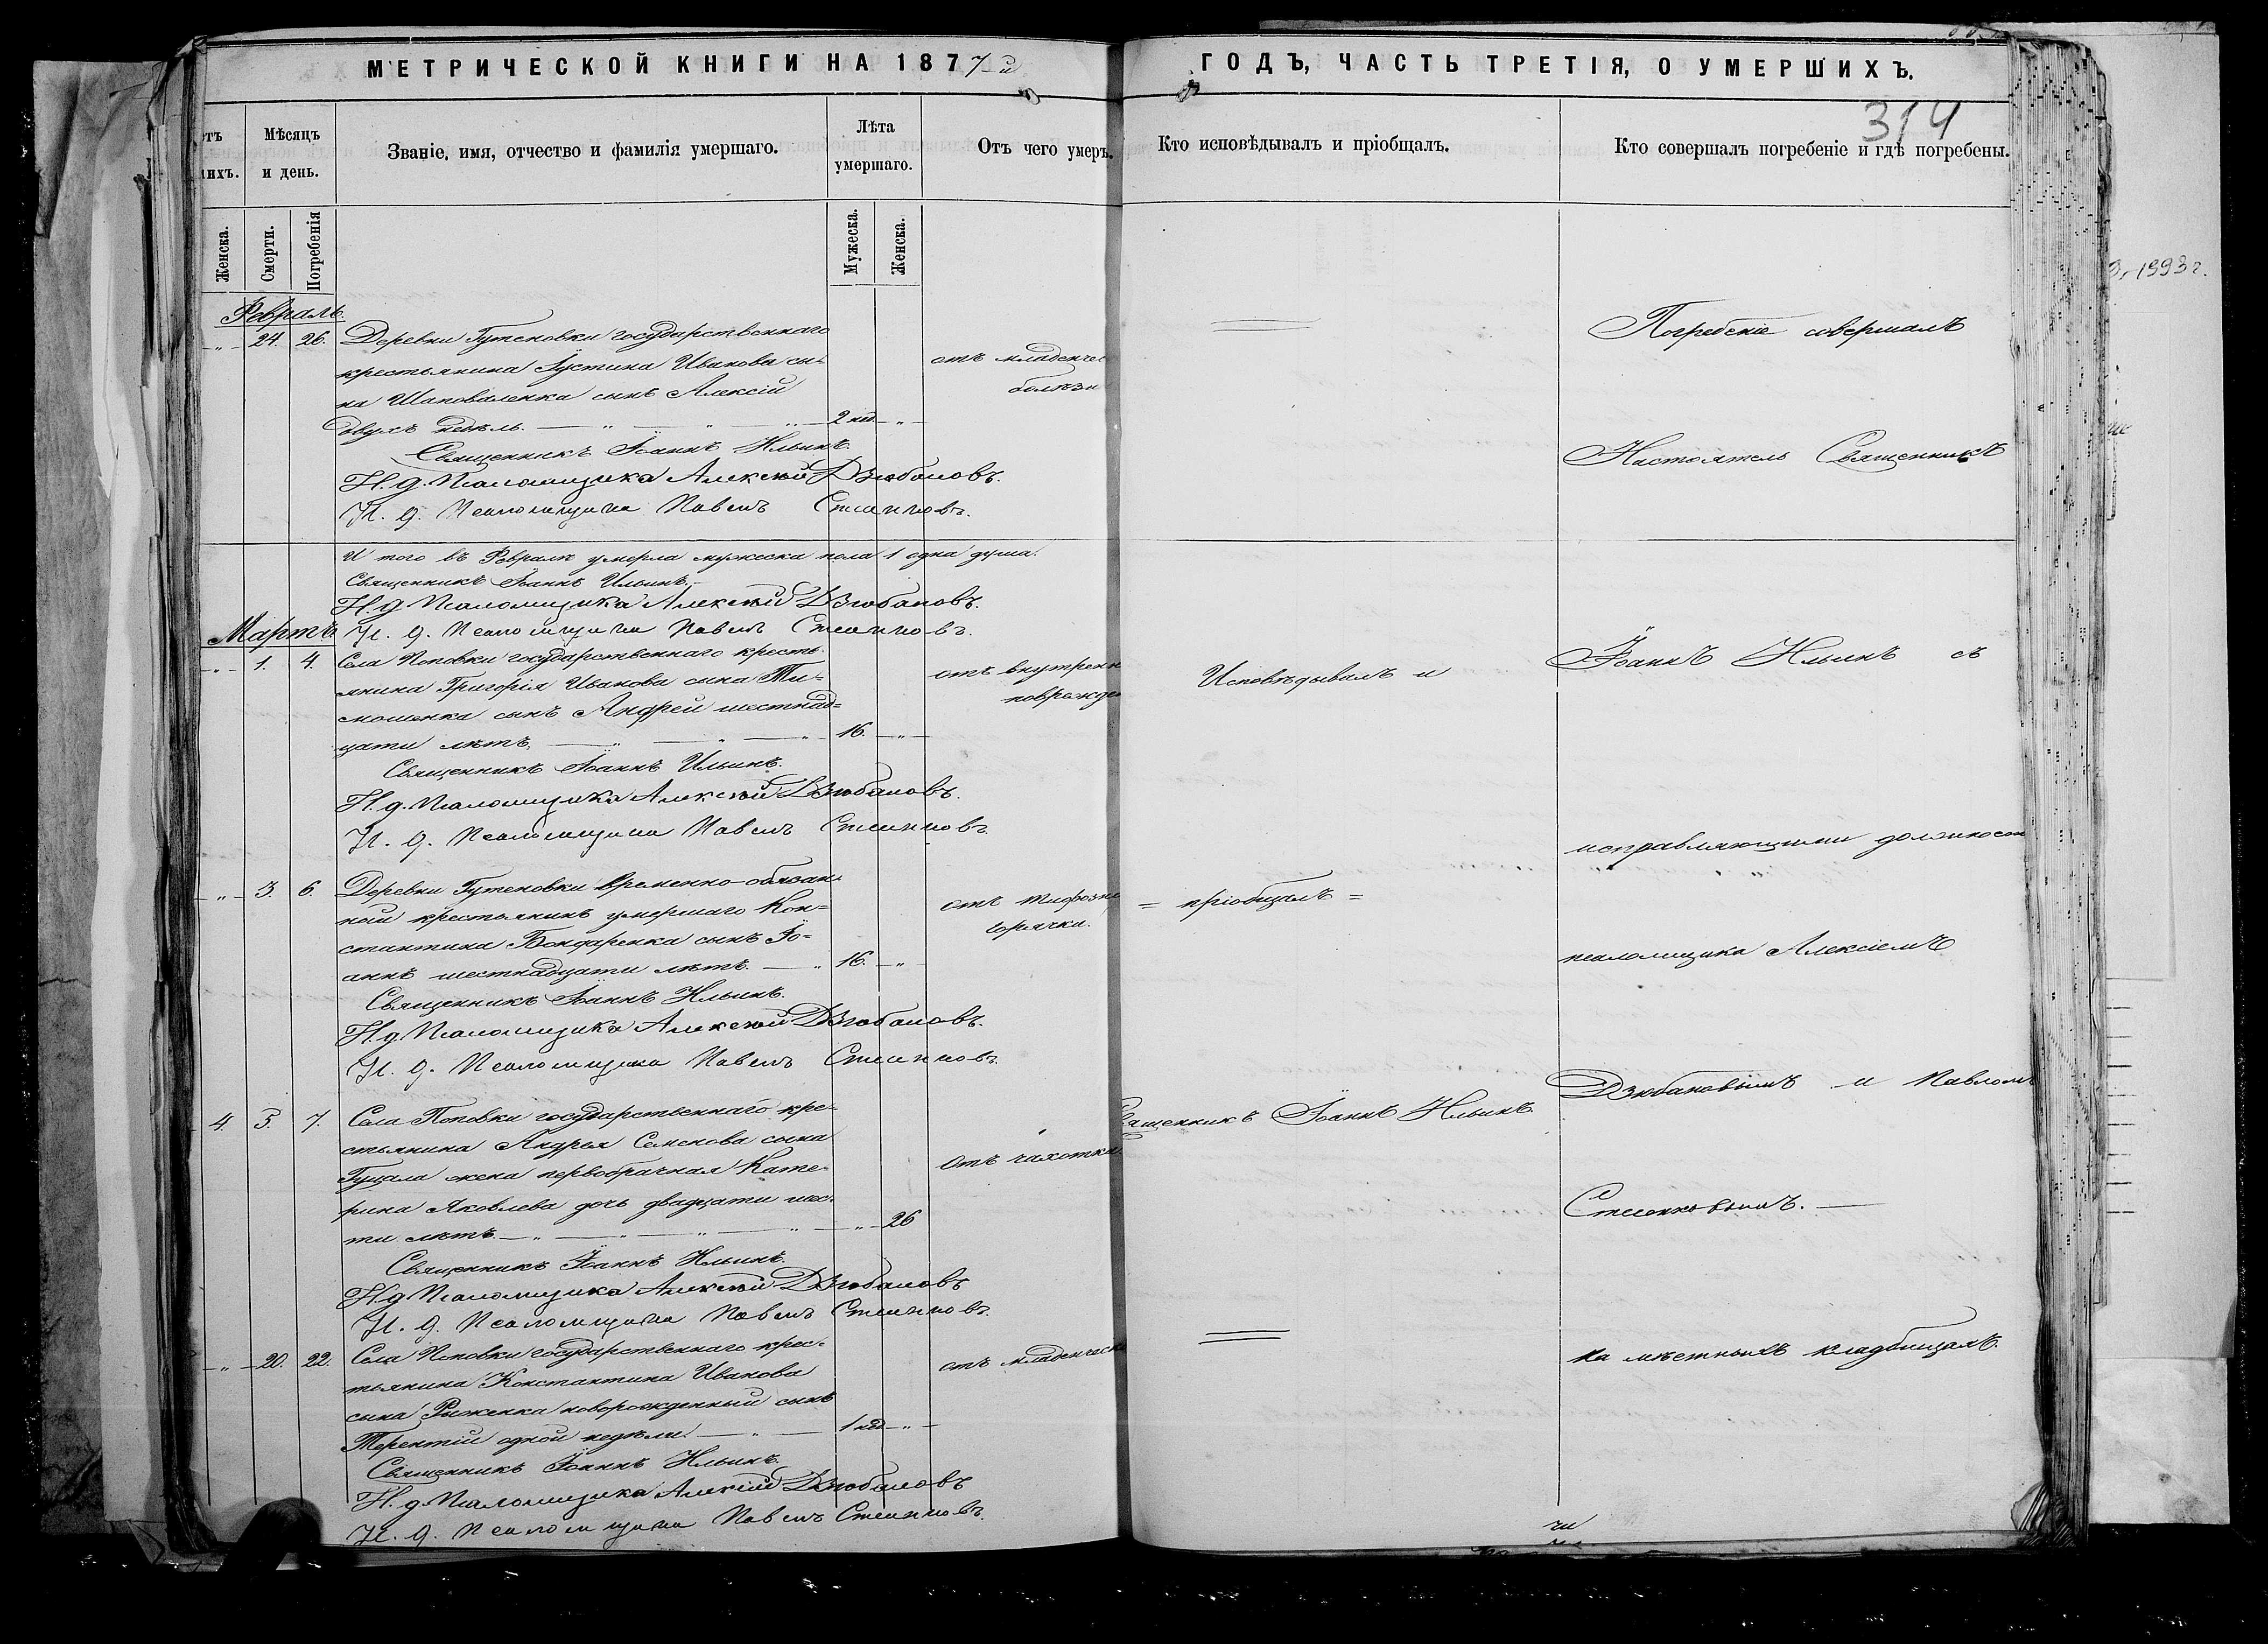 МЕТРИЧЕСКОЙ КНИГИ НА 1877-й
ГОДЪ, ЧАСТЬ ТРЕТІЯ, О УМЕРШИХЪ.
314
Мѣсяцъ и день.
Званіе, имя, отчество и фамилія умершаго.
Лѣта умершаго.
Отъ чего умеръ.
Кто исповѣдывалъ и пріобщалъ.
Кто совершалъ погребеніе и гдѣ погребены.
Женска.
Смерти.
Погребенія
Мужеска.
Женска.
Февраль.
24. 26. Деревни Гутеновки государственнаго
крестьянина Іустина Иванова сы-
на Шаповаленка сынъ Алексій
двухъ недѣль. 2 нед.
отъ младенчес
болѣзни
Священникъ Іоаннъ Ильинъ.
И. д. Псаломщика Алексій Дзюбановъ.
И. д. Псаломщика Павелъ
И того въ Февралѣ умерла мужеска пола 1 одна душа.
Священникъ Іоаннъ Ильинъ.
И. д. Псаломщика Алексій Дзюбановъ.
И. д. Псаломщика Павелъ
Мартъ
1. 4. Села Поповки государственнаго кресть-
янина Григорія Иванова сына Ти-
мошенка сынъ Андрей шестнад-
цати лѣтъ. 16.
отъ внутренн
поврежде
Священникъ Іоаннъ Ильинъ.
И. д. Псаломщика Алексій Дзюбановъ.
И. д. Псаломщика Павелъ
3. 6. Деревни Гутеновки временно-обязан-
ный крестьянинъ умершаго Кон-
стантина Бондаренка сынъ Іо-
аннъ шестнадцати лѣтъ. 16.
отъ тифозн
горячки.
Священникъ Іоаннъ Ильинъ.
И. д. Псаломщика Алексій Дзюбановъ.
И. д. Псаломщика Павелъ
4. 5. 7. Села Поповки государственнаго кре-
стьянина Андрея Семенова сына
Гуцала жена первобрачная Кате-
рина Яковлева дочь двадцати шес-
ти лѣтъ. 26
Отъ чахотки
Священникъ Іоаннъ Ильинъ.
И. д. Псаломщика Алексій Дзюбановъ
И. д. Псаломщика Павелъ
20. 22. Села Поповки государственнаго крес-
тьянина Константина Иванова
сына Рыженка новорожденный сынъ
Терентій одной недѣли. 1 нед.
отъ младенческ
Священникъ Іоаннъ Ильинъ.
И. д. Псаломщика Алексій Дзюбановъ
И. д. Псаломщика Павелъ
Исповѣдывалъ и
= пріобщалъ =
Священникъ Іоаннъ Ильинъ.
Погребеніе совершалъ
Настоятель Священникъ
Іоаннъ Ильинъ съ
исправляющими должнос
псаломщика Алексіемъ
Дзюбановымъ и Павломъ
на мѣстныхъ кладбищахъ.
1993 г.